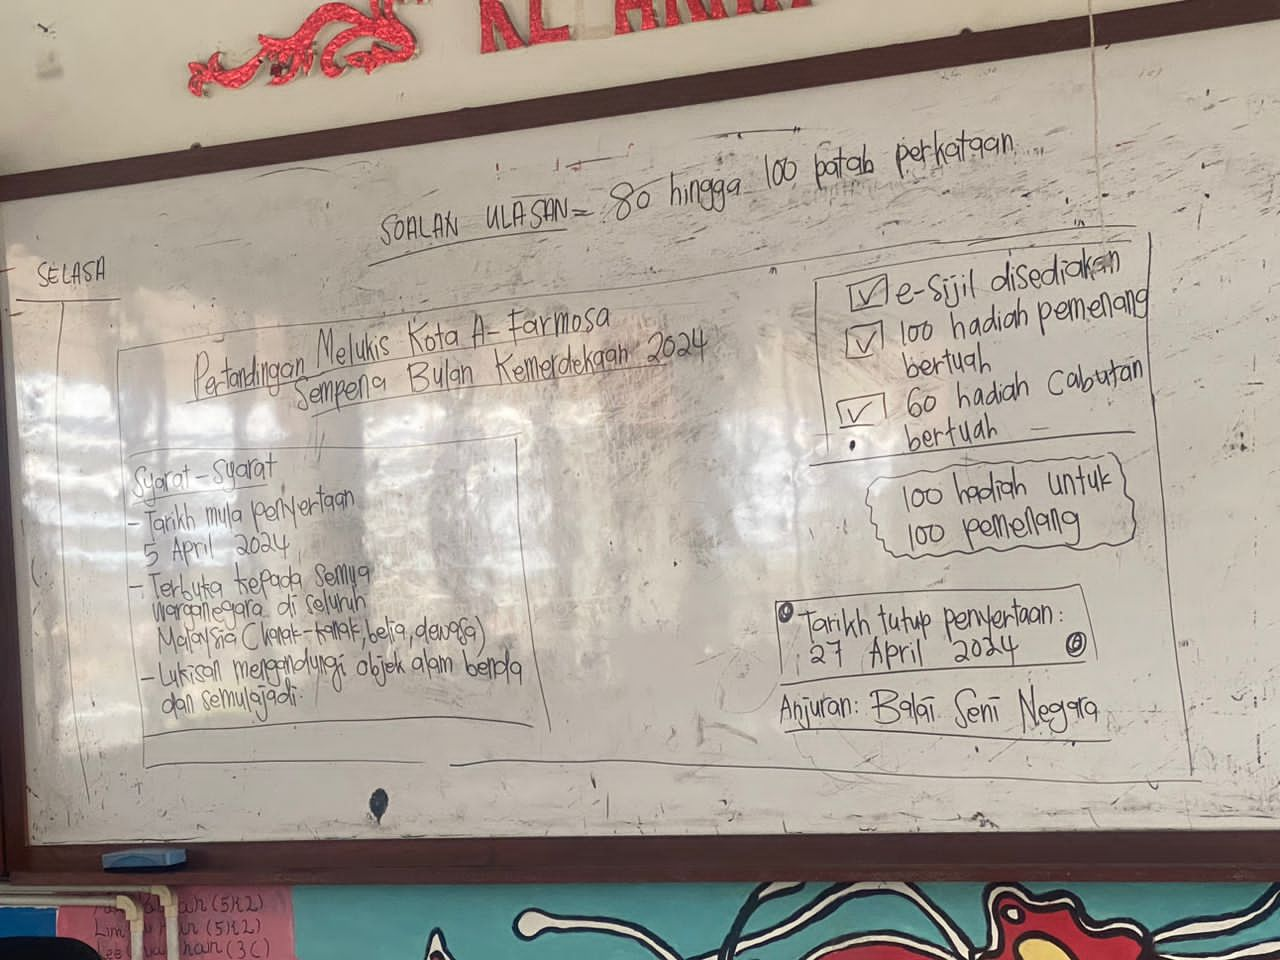 SOALAN ULASAN = 80 hingga 100 patah perkataan
SELASA
Pertandingan Melukis Kota A-Farmosa
Sempena Bulan Kemerdekaan 2024
Syarat-Syarat
- Tarikh mula penyertaan
5 April 2024
- Terbuka kepada semua
warganegara di seluruh
Malaysia (kanak-kanak, belia, dewasa)
- Lukisan mengandungi objek alam benda
dan semulajadi.
☑ e-sijil disediakan
☑ 100 hadiah pemenang
bertuah
☑ 60 hadiah cabutan
bertuah
100 hadiah untuk
100 pemenang
Tarikh tutup penyertaan:
27 April 2024
Anjuran: Balai Seni Negara
(5K2)
Lim (5K2)
han (3C)